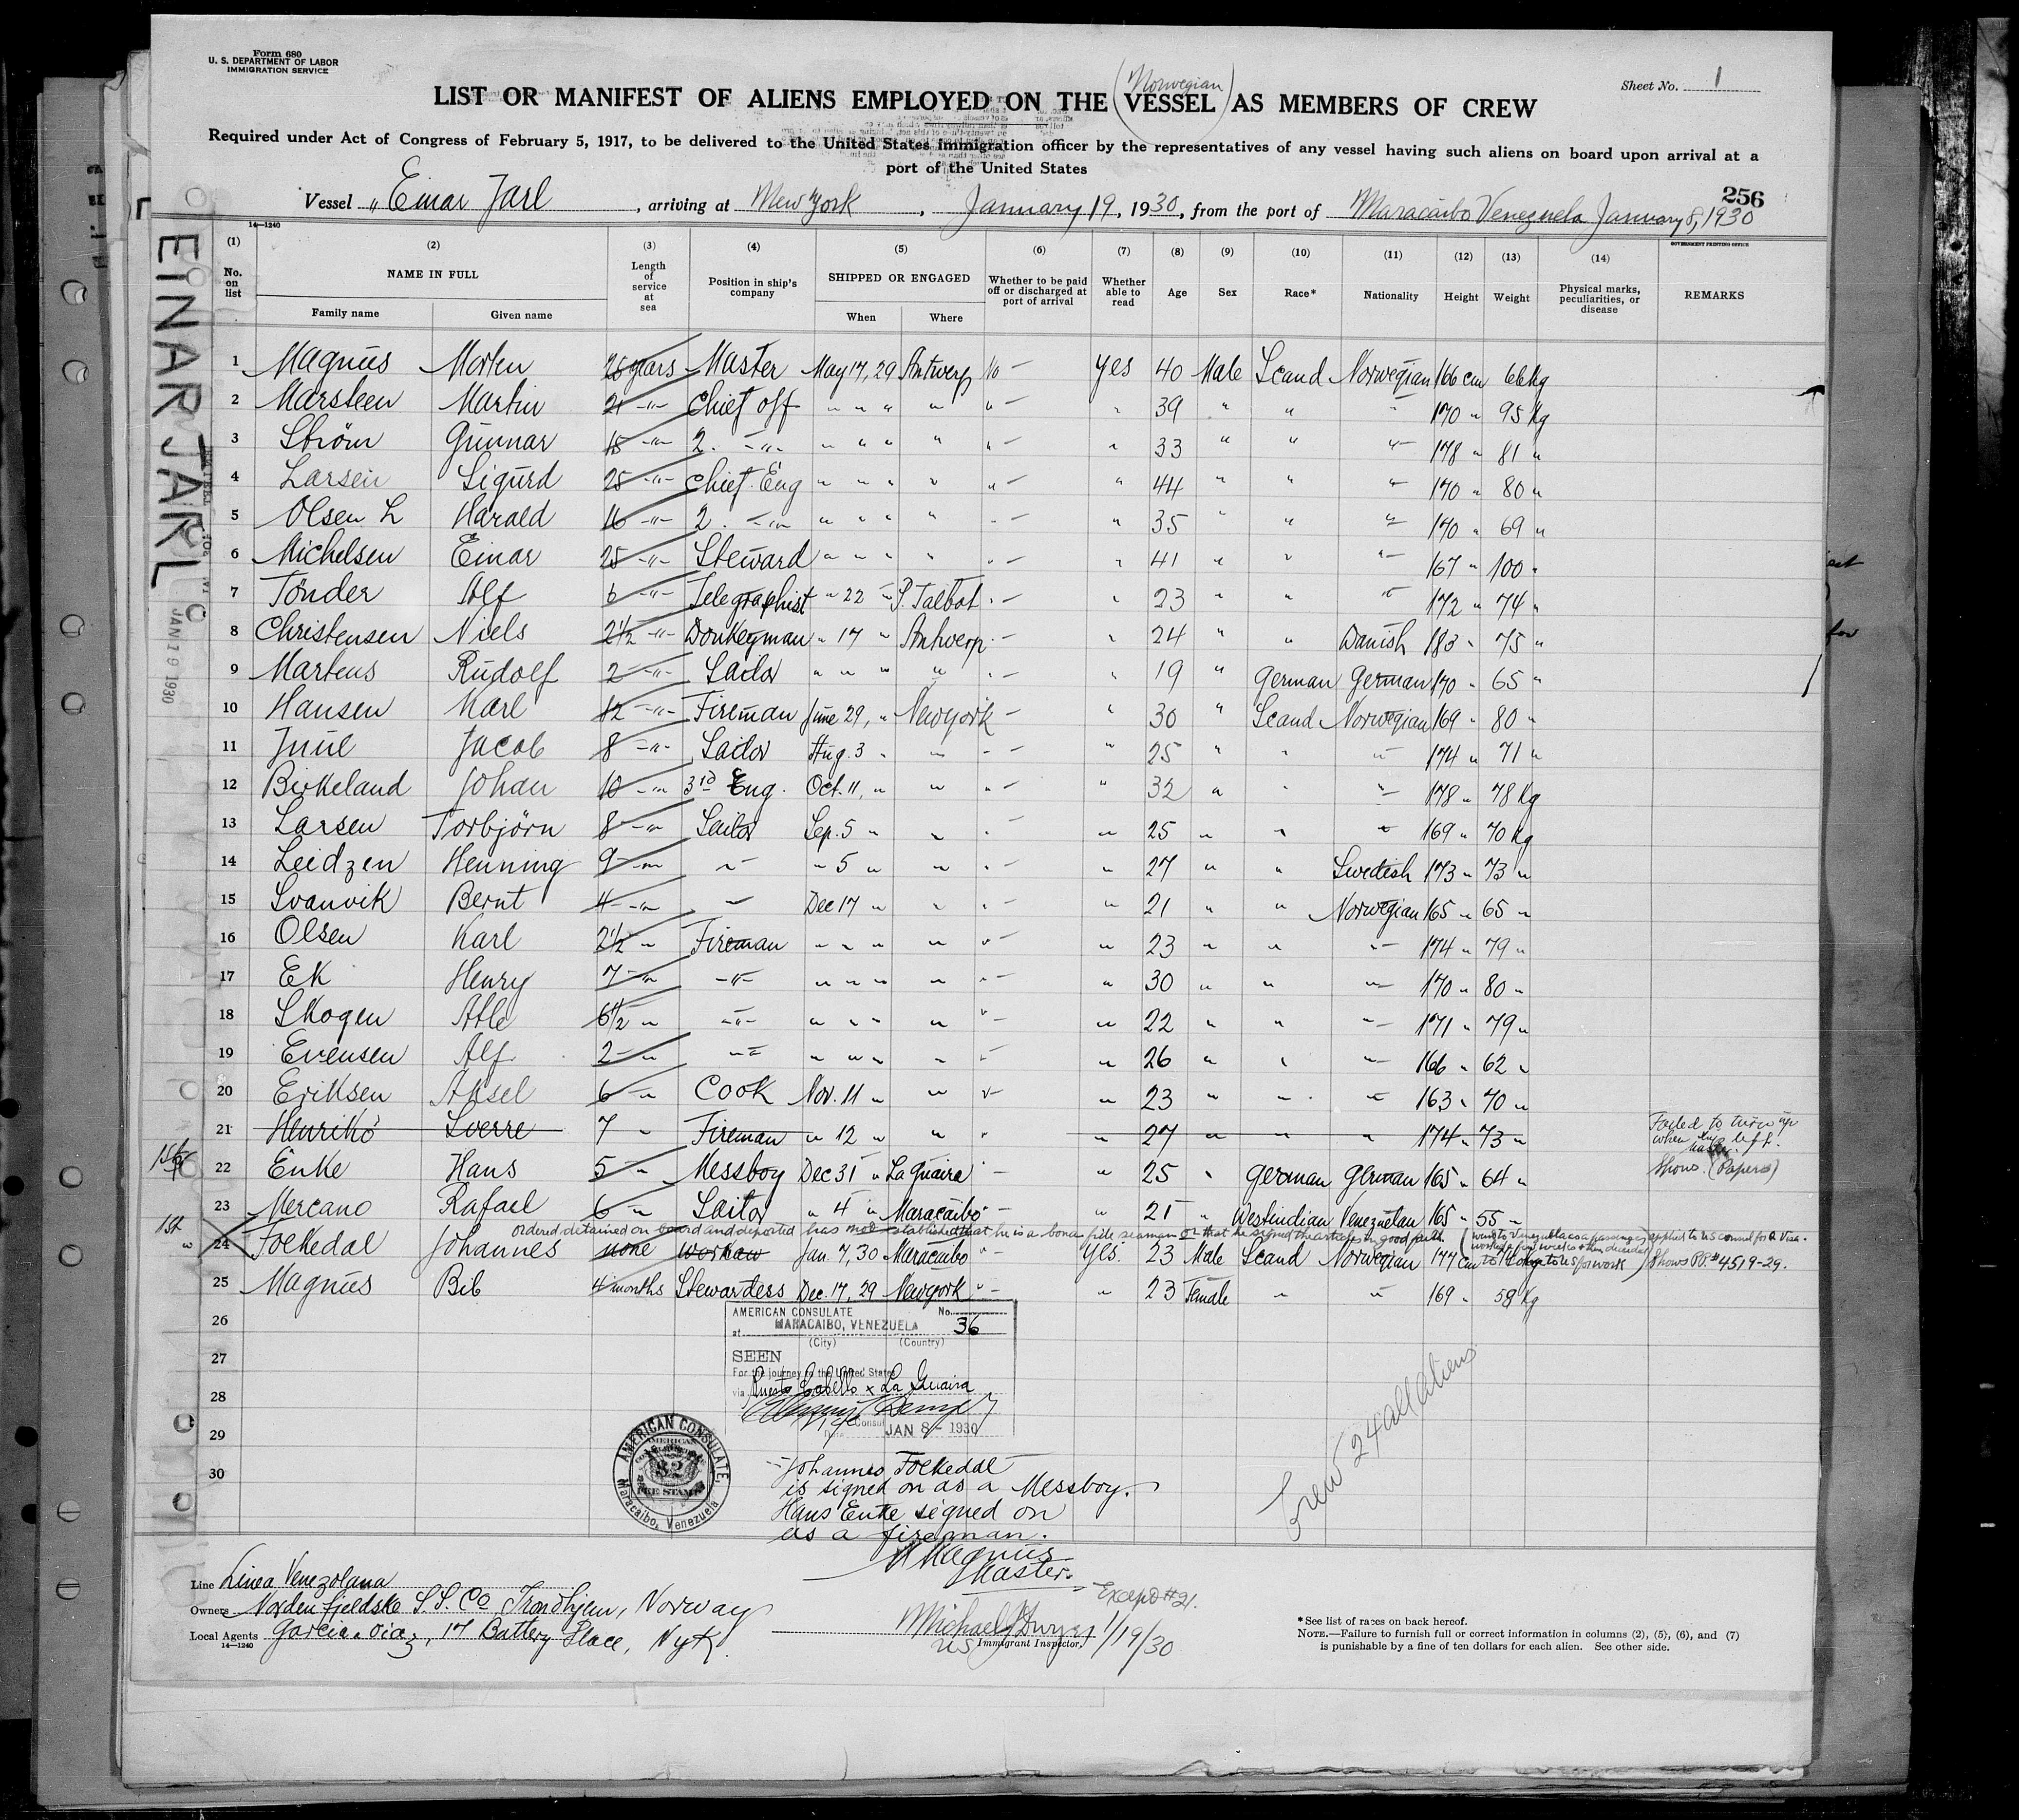 Form 680
U. S. DEPARTMENT OF LABOR
IMMIGRATION SERVICE
Sheet No. 1
(Norwegian)
LIST OR MANIFEST OF ALIENS EMPLOYED ON THE VESSEL AS MEMBERS OF CREW
Required under Act of Congress of February 5, 1917, to be delivered to the United States immigration officer by the representatives of any vessel having such aliens on board upon arrival at a
port of the United States
256
Vessel „ Einar Jarl, arriving at New York, January 19, 1930, from the port of Maracaibo Venezuela January 8, 1930
14—1240
GOVERNMENT PRINTING OFFICE
EINAR JARL
JAN 19 1930
(1) (2) (3) (4) (5) (6) (7) (8) (9) (10) (11) (12) (13) (14)
No. on list NAME IN FULL Length of service at sea Position in ship's company SHIPPED OR ENGAGED Whether to be paid off or discharged at port of arrival Whether able to read Age Sex Race* Nationality Height Weight Physical marks, peculiarities, or disease REMARKS
Family name Given name When Where
1 Magnus Morten 25 years Master May 17, 29 Antwerp No — yes 40 Male Scand Norwegian 166 cm 66 Kg
2 Marsteen Martin 21 -"- Chief off " " " " " — " 39 " " -"- 170 " 95 Kg
3 Strøm Gunnar 15 -"- 2. -"- " " " " " — " 33 " " -"- 178 " 81 "
4 Larsen Sigurd 25 -"- Chief Eng " " " " " — " 44 " " -"- 170 " 80 "
5 Olsen L Harald 16 -"- 2. -"- " " " " " — " 35 " " -"- 170 " 69 "
6 Michelsen Einar 25 -"- Steward " " " " " — " 41 " " -"- 167 " 100 "
7 Tönder Alf 6 -"- Telegraphist " 22 " P. Talbot " — " 23 " " -"- 172 " 74 "
8 Christensen Niels 2½ -"- Donkeyman " 17 " Antwerp " — " 24 " " Danish 183 " 75 "
9 Martens Rudolf 2 -"- Sailor " " " " " — " 19 " German German 170 " 65 "
10 Hansen Karl 12 -"- Fireman June 29, " New York — " 30 " Scand Norwegian 169 " 80 "
11 Juul Jacob 8 -"- Sailor Aug. 3 " " " — " 25 " " -"- 174 " 71 "
12 Birkeland Johan 10 -"- 3rd Eng. Oct. 11, " " " — " 32 " " -"- 178 " 78 Kg
13 Larsen Torbjörn 8 -"- Sailor Sep. 5 " " " — " 25 " " -"- 169 " 70 Kg
14 Leidzen Henning 9 -"- " " 5 " " " — " 27 " " Swedish 173 " 73 "
15 Svanvik Bernt 4 -"- " Dec 17 " " " — " 21 " " Norwegian 165 " 65 "
16 Olsen Karl 2½ " Fireman " " " " " — " 23 " " -"- 174 " 79 "
17 Ek Henry 7 " -"- " " " " " — " 30 " " -"- 170 " 80 "
18 Skogen Atle 6½ " -"- " " " " " — " 22 " " -"- 171 " 79 "
19 Evensen Alf 2 " -"- " " " " " — " 26 " " -"- 166 " 62 "
20 Eriksen Aksel 6 " Cook Nov. 11 " " " — " 23 " " -"- 163 " 70 "
21 Henrikö Sverre 7 " Fireman " 12 " " " " 27 " " " 174 " 73 "
Failed to turn up
when left.
Shows. (Papers)
22 Enke Hans 5 " Messboy Dec 31 " La Guaira " — " 25 " German German 165 " 64 "
23 Mercano Rafael 6 " Sailor " 4 " Maracaibo " — " 21 " Westindian Venezuelan 165 " 55 "
1st
ordered detained on board and deported has not established that he is a bona fide seaman or that he signed the articles in good faith
24 Folkedal Johannes none workaw Jan. 7, 30 Maracaibo " — yes. 23 Male Scand Norwegian 177 cm
Shows PP. # 4519-29.
25 Magnus Bib 4 months Stewardess Dec. 17, 29 New York " — " 23 Female " -"- 169 " 58 Kg
26
27
28
29
30
AMERICAN CONSULATE No. 36
at MARACAIBO, VENEZUELA
(City) (Country)
SEEN
For the journey to the United States
via Puerto Cabello & La Guaira
Consul
JAN 8 - 1930
AMERICAN CONSULATE,
Maracaibo, Venezuela
Johannes Folkedal
is signed on as a Messboy.
Hans Enke signed on
as a fireman.
M Magnus
Master.
Crew 24 all aliens
Line Linea Venezolana
Owners Nordenfjeldske S.S. Co Trondhjem, Norway
Local Agents Garcia & Diaz, 17 Battery Place, NyK
14—1240
Except #21.
Michael J Dwyer 1/19/30
US Immigrant Inspector.
*See list of races on back hereof.
NOTE.—Failure to furnish full or correct information in columns (2), (5), (6), and (7)
is punishable by a fine of ten dollars for each alien. See other side.